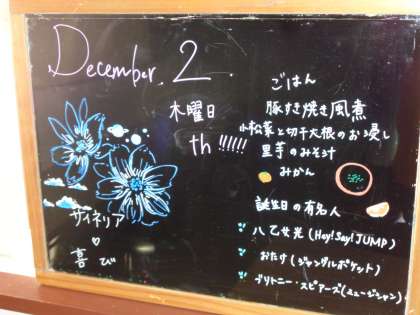 December. 2
木曜日
th!!!!!!
サイネリア
♡
喜び
ごはん
豚すき焼き風煮
小松菜と切干大根のお浸し
里芋のみそ汁
みかん
誕生日の有名人
八乙女光(Hey!Say!JUMP)
おたけ(ジャングルポケット)
ブリトニー・スピアーズ(ミュージシャン)